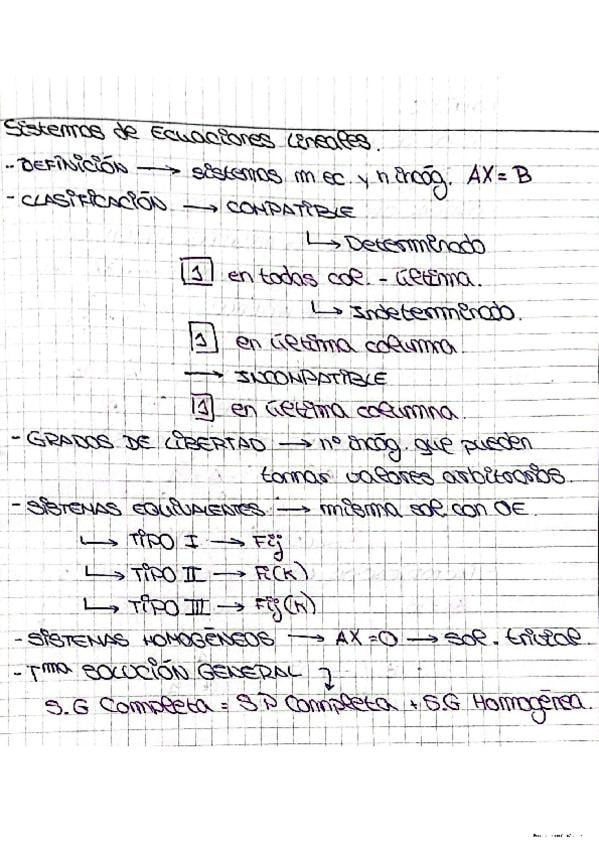 Sistemas de Ecuaciones Lineales.
- DEFINICIÓN → sistemas m ec. y n incóg. AX = B
- CLASIFICACIÓN → COMPATIBLE
↳ Determinado
1 en todas col. - última.
↳ Indeterminado.
1 en última columna.
→ INCOMPATIBLE
1 en última columna.
- GRADOS DE LIBERTAD → nº incóg. que pueden
tomar valores arbitrarios.
- SISTEMAS EQUIVALENTES → misma sol con OE.
↳ TIPO I → Fij
↳ TIPO II → Fi(K)
↳ TIPO III → Fij(K)
- SISTEMAS HOMOGÉNEOS → AX = 0 → sol. trivial.
- Tma SOLUCIÓN GENERAL ↴
S.G Completa = S.P Completa + S.G Homogénea.